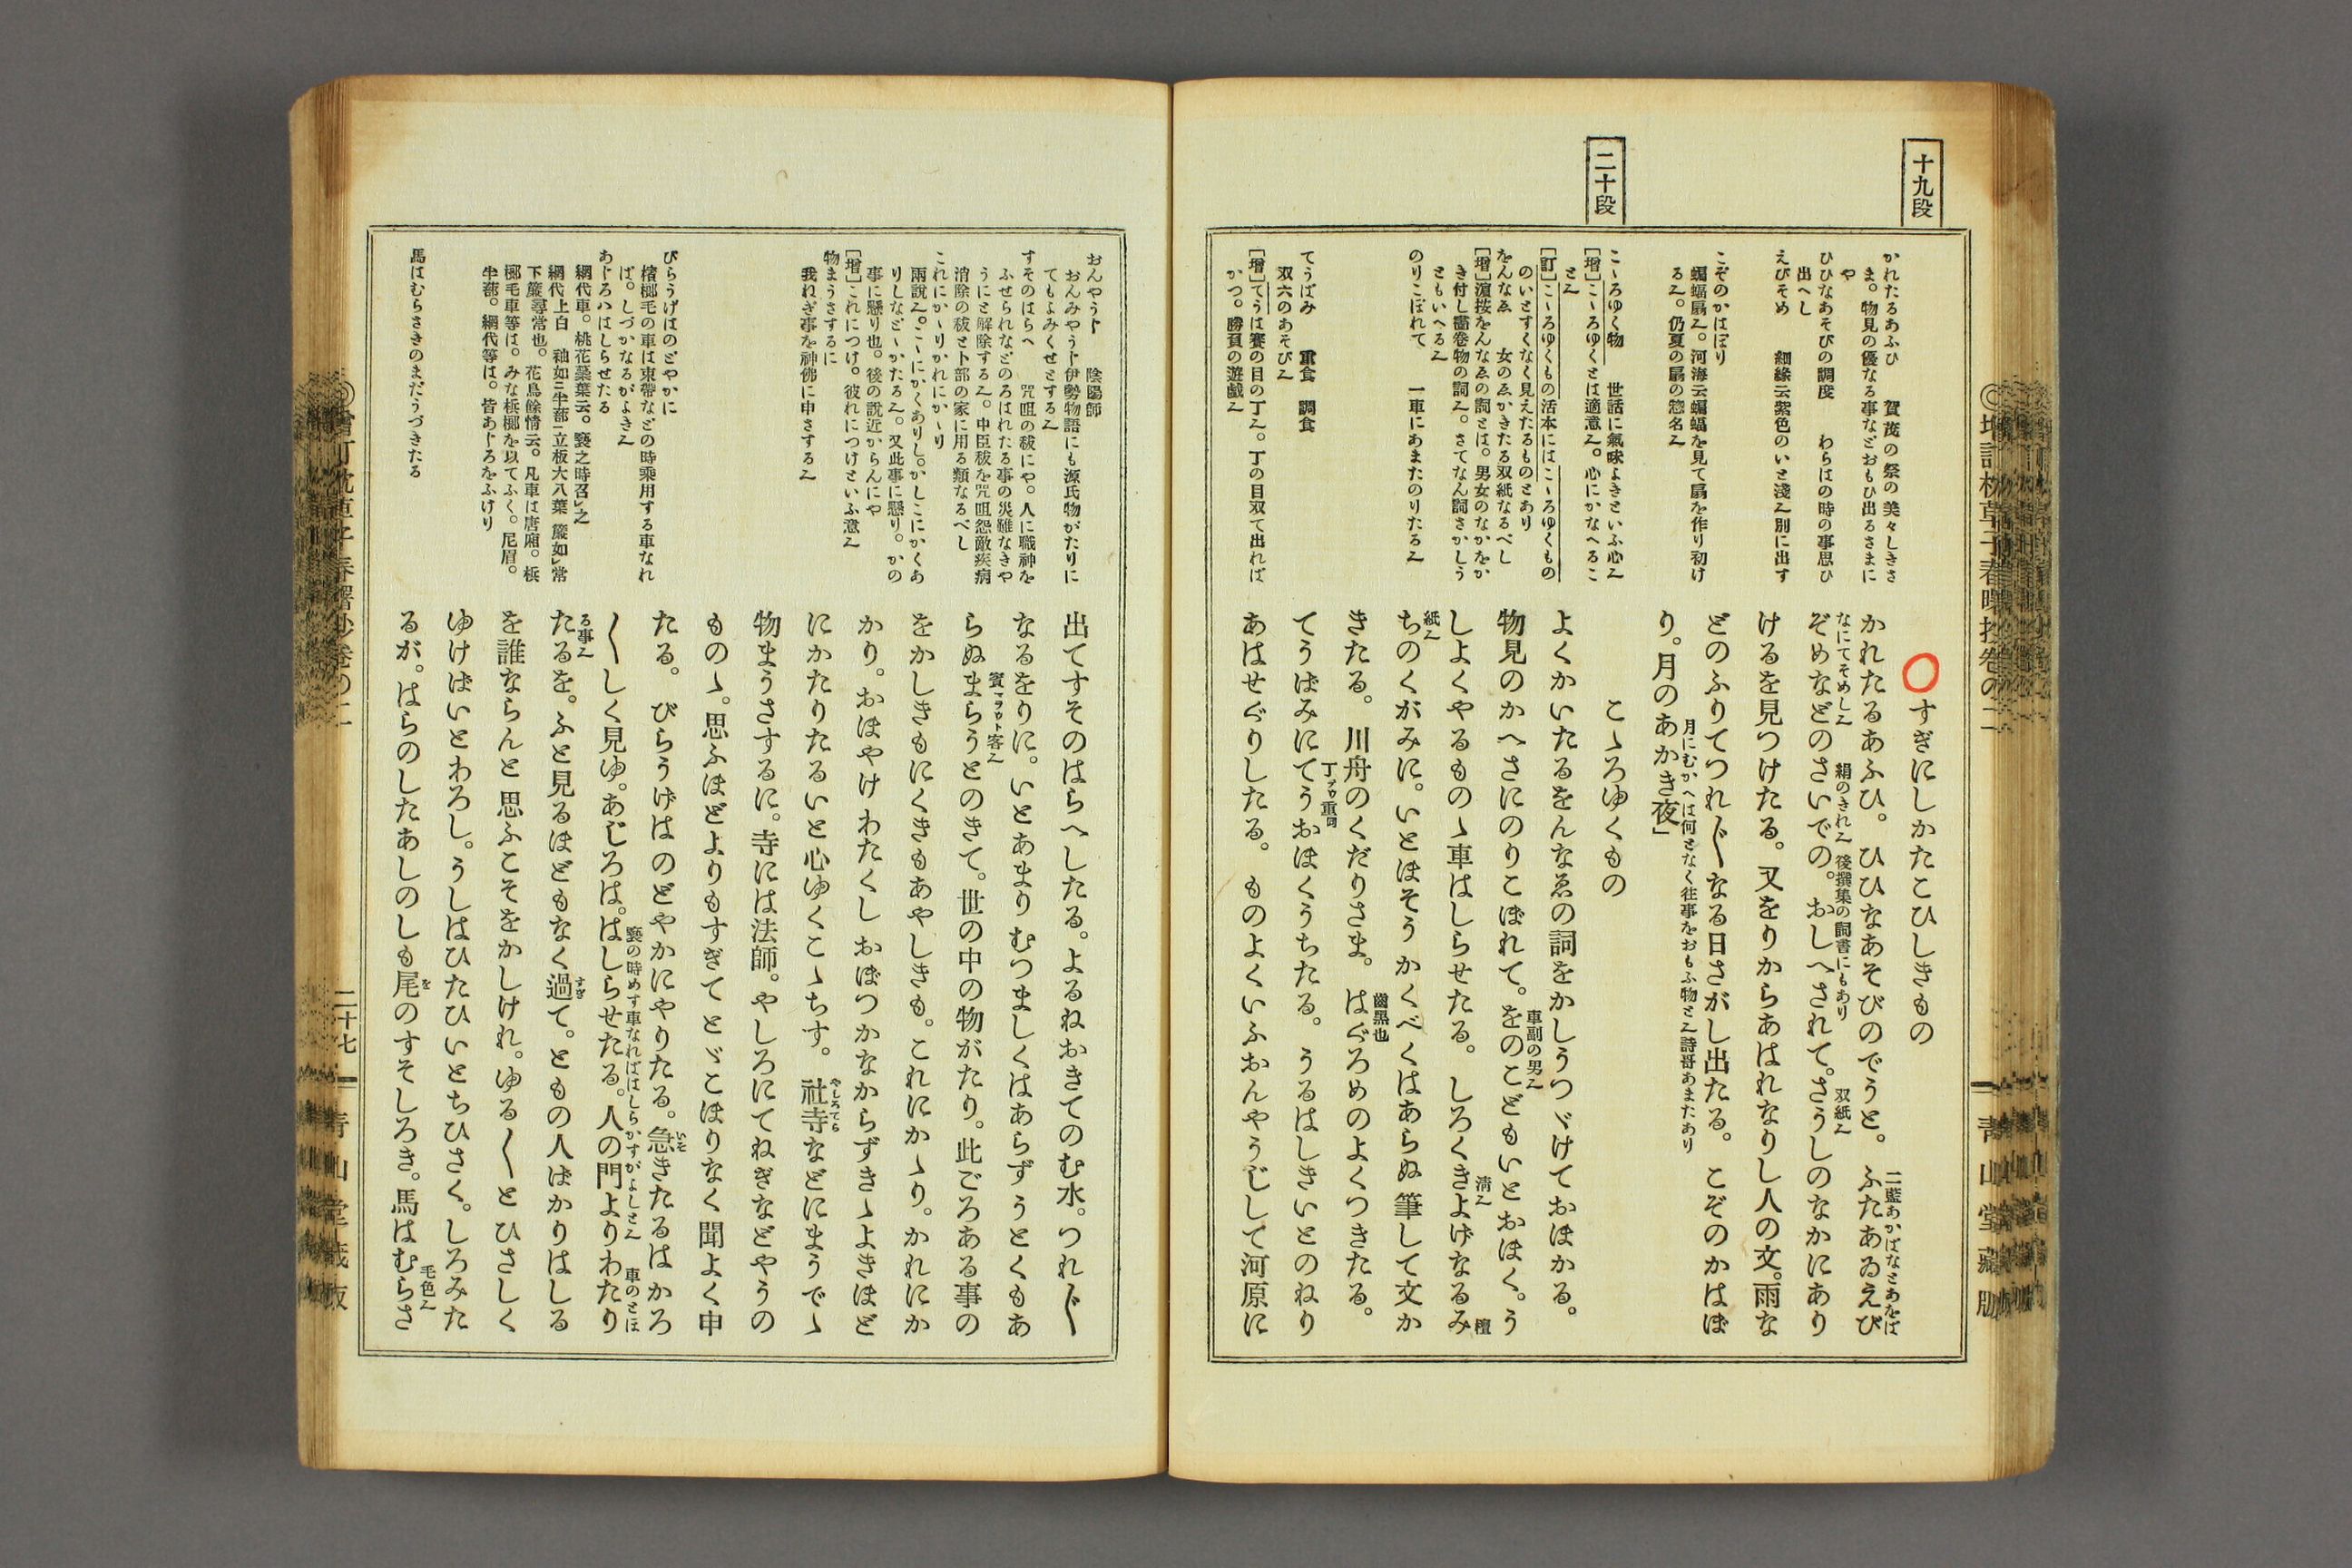 十九段
二十段
かれたるあふひ　賀茂の祭の美々しきさ
ま。物見の優なる事などおもひ出るさまに
や
ひひなあそびの調度　わらはの時の事思ひ
出へし
えびそめ　細緣云紫色のいと淺〻別に出す
こぞのかはほり
蝙蝠扇〻。河海云蝙蝠を見て扇を作り初け
る〻。仍夏の扇の惣名〻
こゝろゆく物　世話に氣味よきといふ心〻
[増]こゝろゆくとは適意〻。心にかなへるこ
と〻
[訂]こゝろゆくもの活本にはこゝろゆくもの
のいとすくなく見えたるものとあり
をんなゑ　女のゑかきたる双紙なるべし
[増]濵按をんなゑの詞とは。男女のなかをか
き付し畵巻物の詞〻。さてなん詞さかしう
ともいへる〻
のりこぼれて　一車にあまたのりたる〻
てうばみ　重食　調食
双六のあそび〻
[増]てうは賽の目の丁〻。丁の目双て出れば
かつ。勝負の遊戲〻
すぎにしかたこひしきもの
かれたるあふひ。ひひなあそびのでうと。ふたあゐえび
二藍あかばなとあをば
ぞめなどのさいでの。おしへされて。さうしのなかにあり
なにてそめし〻　絹のきれ〻　後撰集の詞書にもあり　双紙〻
けるを見つけたる。又をりからあはれなりし人の文。雨な
どのふりてつれ〴〵なる日さがし出たる。こぞのかはほ
り。月のあかき夜」
月にむかへは何となく往事をおもふ物と〻詩哥あまたあり
こゝろゆくもの
よくかいたるをんなゑの詞をかしうつゞけておほかる。
物見のかへさにのりこぼれて。をのこどもいとおほく。う
車副の男〻
しよくやるものゝ車はしらせたる。しろくきよげなるみ
淸〻　檀
ちのくがみに。いとほそうかくべくはあらぬ筆して文か
紙〻
きたる。川舟のくだりさま。はぐろめのよくつきたる。
齒黑也
てうばみにてうおほくうちたる。うるはしきいとのねり
あはせぐりしたる。ものよくいふおんやうじして河原に
おんやうト　陰陽師
おんみやうト伊勢物語にも源氏物がたりに
てもよみくせとする〻
すそのはらへ　咒咀の祓にや。人に職神を
ふせられなどのろはれたる事の災難なきや
うにと解除する〻。中臣祓を咒咀怨敵疾病
消除の祓と卜部の家に用る類なるべし
これにかゝりかれにかゝり
兩說〻。こゝにかくありし。かしこにかくあ
りしなどゝかたる〻。又此事に懸り。かの
事に懸り也。後の說近からんにや
[増]これにつけ。彼れにつけといふ意〻
物まうさするに
我ねぎ事を神佛に申さする〻
びらうげはのどやかに
檳榔毛の車は束帶などの時乘用する車なれ
ば。しづかなるがよき〻
あトろハはしらせたる
網代車。桃花蘂葉云。褻之時召之
下簾尋常也。花鳥餘情云。凡車は唐廂。檳
榔毛車等は。みな檳榔を以てふく。尼眉。
半蔀。網代等は。皆あトろをふけり
馬はむらさきのまだうづきたる
出てすそのはらへしたる。よるねおきてのむ水。つれ〴〵
なるをりに。いとあまりむつましくはあらずうとくもあ
らぬまらうとのきて。世の中の物がたり。此ごろある事の
をかしきもにくきもあやしきも。これにかゝり。かれにか
かり。おほやけわたくしおぼつかなからずきゝよきほど
にかたりたるいと心ゆくこゝちす。社寺などにまうでゝ
やしろてら
物まうさするに。寺には法師。やしろにてねぎなどやうの
ものゝ。思ふほどよりもすぎてとゞこほりなく聞よく申
たる。びらうげはのどやかにやりたる。急きたるはかろ
いそ
〴〵しく見ゆ。あじろは。はしらせたる。人の門よりわたり
褻の時めす車なればはしらかすがよしと〻　車のとほ
たるを。ふと見るほどもなく過て。ともの人ばかりはしる
る事〻　すぎ
を誰ならんと思ふこそをかしけれ。ゆる〳〵とひさしく
ゆけばいとわろし。うしはひたひいとちひさく。しろみた
るが。はらのしたあしのしも尾のすそしろき。馬はむらさ
を　毛色〻
二十七